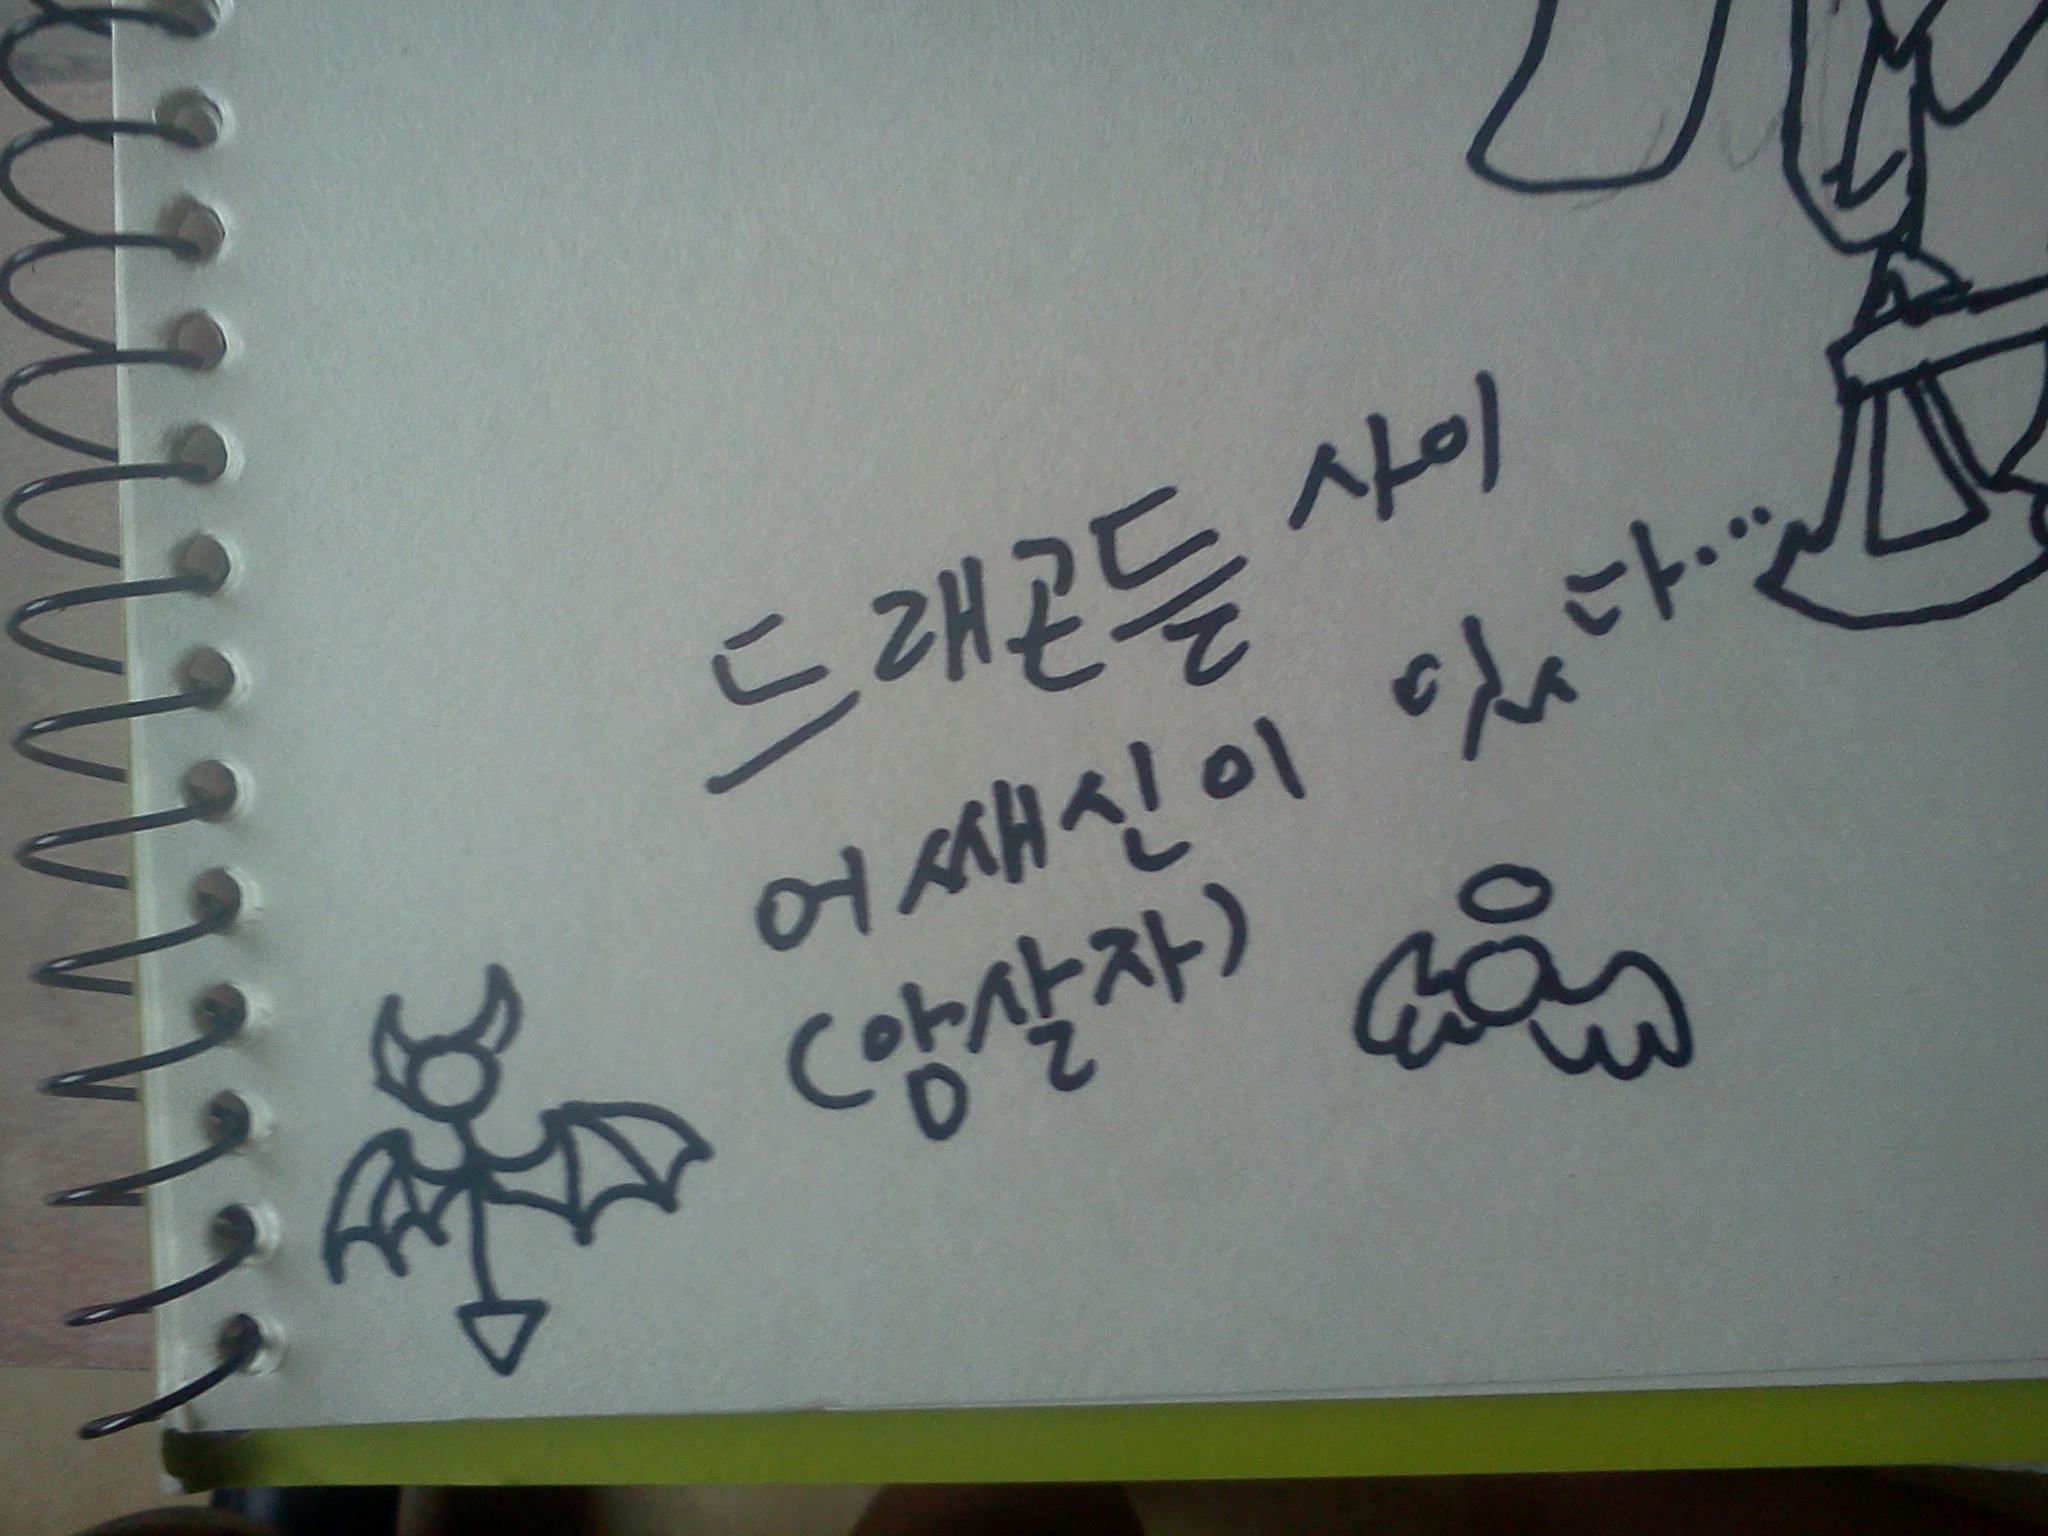 드래곤들 사이
어쌔신이 있다...
(암살자)